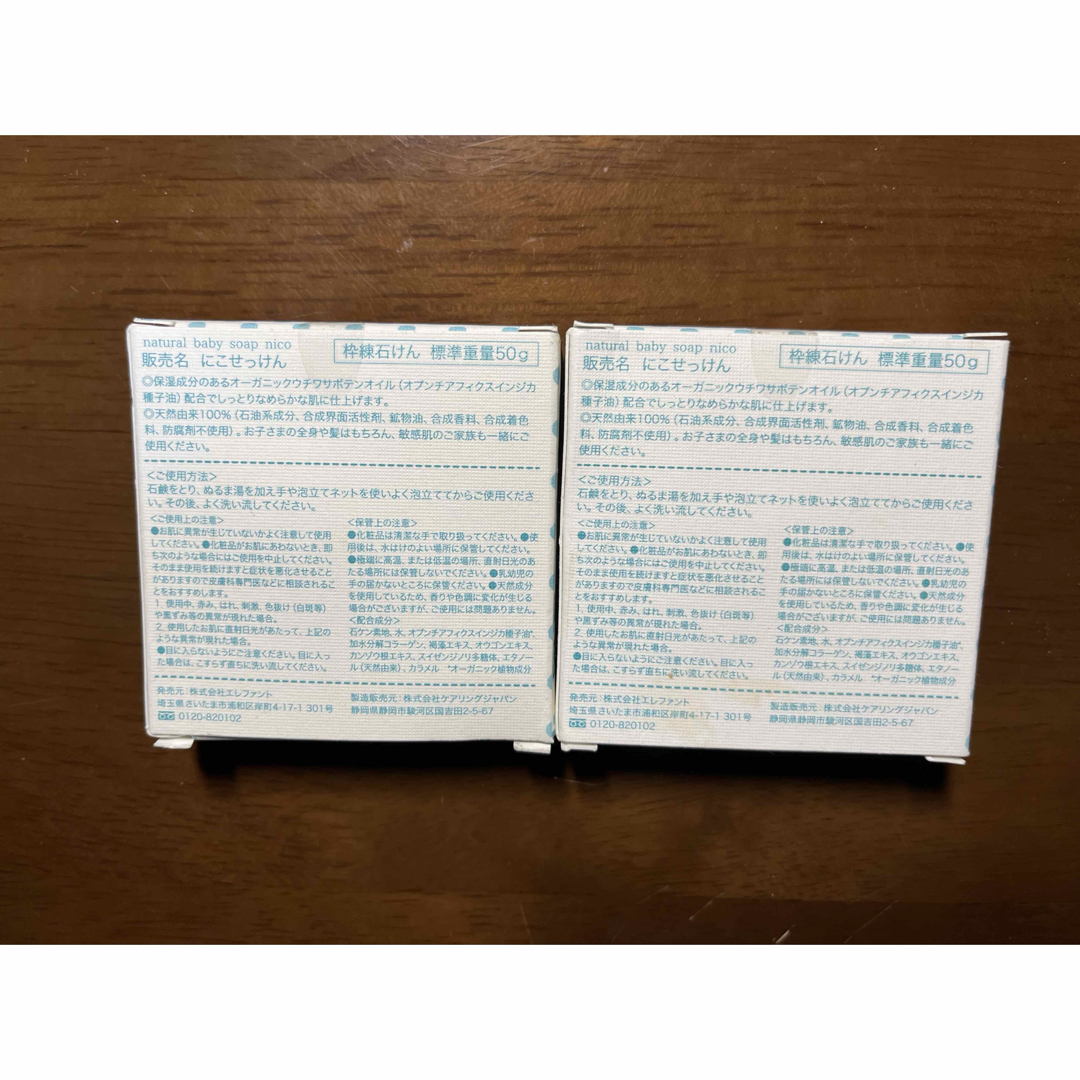 natural baby soap nico
販売名 にこせっけん
枠練石けん 標準重量50g
◎保湿成分のあるオーガニックウチワサボテンオイル（オプンチアフィクスインジカ
種子油）配合でしっとりなめらかな肌に仕上げます。
◎天然由来100％（石油系成分、合成界面活性剤、鉱物油、合成香料、合成着色
料、防腐剤不使用）。お子さまの全身や髪はもちろん、敏感肌のご家族も一緒にご
使用ください。
＜ご使用方法＞
石鹸をとり、ぬるま湯を加え手や泡立てネットを使いよく泡立ててからご使用くださ
い。その後、よく洗い流してください。
＜ご使用上の注意＞
●お肌に異常が生じていないかよく注意して使用
してください。●化粧品がお肌にあわないとき、即
ち次のような場合にはご使用を中止してください。
そのまま使用を続けますと症状を悪化させること
がありますので皮膚科専門医などに相談されるこ
とをおすすめします。
1. 使用中、赤み、はれ、刺激、色抜け（白斑等）
や黒ずみ等の異常が現れた場合。
2. 使用したお肌に直射日光があたって、上記の
ような異常が現れた場合。
●目に入らないようにご注意ください。目に入っ
た場合は、こすらず直ちに洗い流してください。
＜保管上の注意＞
●化粧品は清潔な手で取り扱ってください。●使
用後は、水はけのよい場所に保管してください。
●極端に高温、または低温の場所、直射日光のあ
たる場所には保管しないでください。●乳幼児の
手の届かないところに保管ください。●天然成分
を使用しているため、香りや色調に変化が生じる
場合がございますが、ご使用には問題ありません。
＜配合成分＞
石ケン素地、水、オプンチアフィクスインジカ種子油*、
加水分解コラーゲン、褐藻エキス、オウゴンエキス、
カンゾウ根エキス、スイゼンジノリ多糖体、エタノー
ル（天然由来）、カラメル *オーガニック植物成分
発売元：株式会社エレファント
埼玉県さいたま市浦和区岸町4-17-1 301号
0120-820102
製造販売元：株式会社ケアリングジャパン
静岡県静岡市駿河区国吉田2-5-67
natural baby soap nico
販売名 にこせっけん
枠練石けん 標準重量50g
◎保湿成分のあるオーガニックウチワサボテンオイル（オプンチアフィクスインジカ
種子油）配合でしっとりなめらかな肌に仕上げます。
◎天然由来100％（石油系成分、合成界面活性剤、鉱物油、合成香料、合成着色
料、防腐剤不使用）。お子さまの全身や髪はもちろん、敏感肌のご家族も一緒にご
使用ください。
＜ご使用方法＞
石鹸をとり、ぬるま湯を加え手や泡立てネットを使いよく泡立ててからご使用くださ
い。その後、よく洗い流してください。
＜ご使用上の注意＞
●お肌に異常が生じていないかよく注意して使用
してください。●化粧品がお肌にあわないとき、即
ち次のような場合にはご使用を中止してください。
そのまま使用を続けますと症状を悪化させること
がありますので皮膚科専門医などに相談されるこ
とをおすすめします。
1. 使用中、赤み、はれ、刺激、色抜け（白斑等）
や黒ずみ等の異常が現れた場合。
2. 使用したお肌に直射日光があたって、上記の
ような異常が現れた場合。
●目に入らないようにご注意ください。目に入っ
た場合は、こすらず直ちに洗い流してください。
＜保管上の注意＞
●化粧品は清潔な手で取り扱ってください。●使
用後は、水はけのよい場所に保管してください。
●極端に高温、または低温の場所、直射日光のあ
たる場所には保管しないでください。●乳幼児の
手の届かないところに保管ください。●天然成分
を使用しているため、香りや色調に変化が生じる
場合がございますが、ご使用には問題ありません。
＜配合成分＞
石ケン素地、水、オプンチアフィクスインジカ種子油*、
加水分解コラーゲン、褐藻エキス、オウゴンエキス、
カンゾウ根エキス、スイゼンジノリ多糖体、エタノー
ル（天然由来）、カラメル *オーガニック植物成分
発売元：株式会社エレファント
埼玉県さいたま市浦和区岸町4-17-1 301号
0120-820102
製造販売元：株式会社ケアリングジャパン
静岡県静岡市駿河区国吉田2-5-67